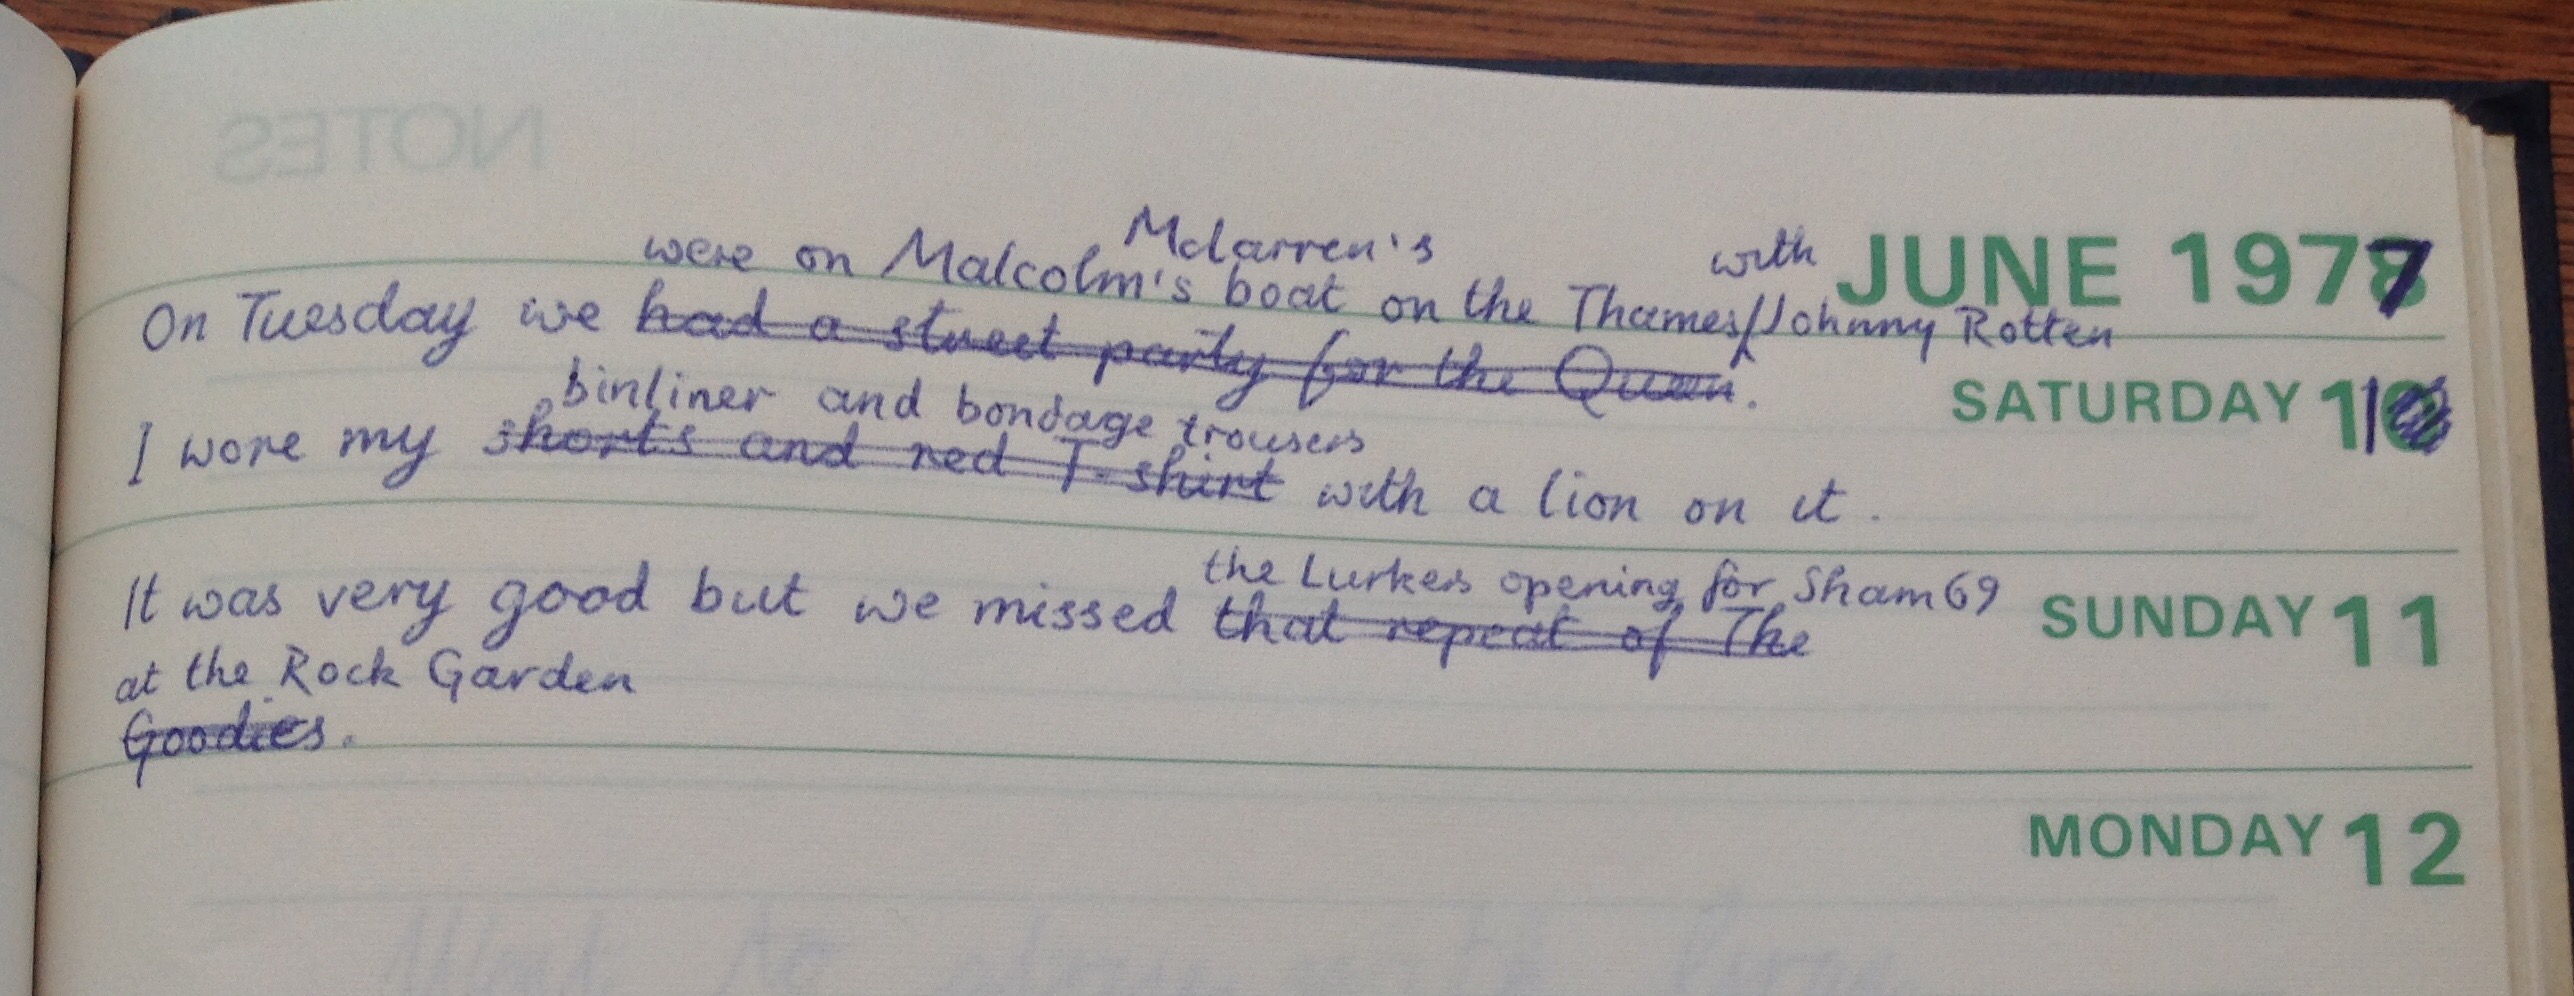 NOTES
JUNE 1977
were on Malcolm's Mclarren's boat on the Thames/ with Johnny Rotten
On Tuesday we had a street party for the Queen.
SATURDAY 11
binliner and bondage trousers
I wore my shorts and red T-shirt with a lion on it.
the Lurkers opening for Sham 69
SUNDAY 11
It was very good but we missed that repeat of The
at the Rock Garden
Goodies.
MONDAY 12